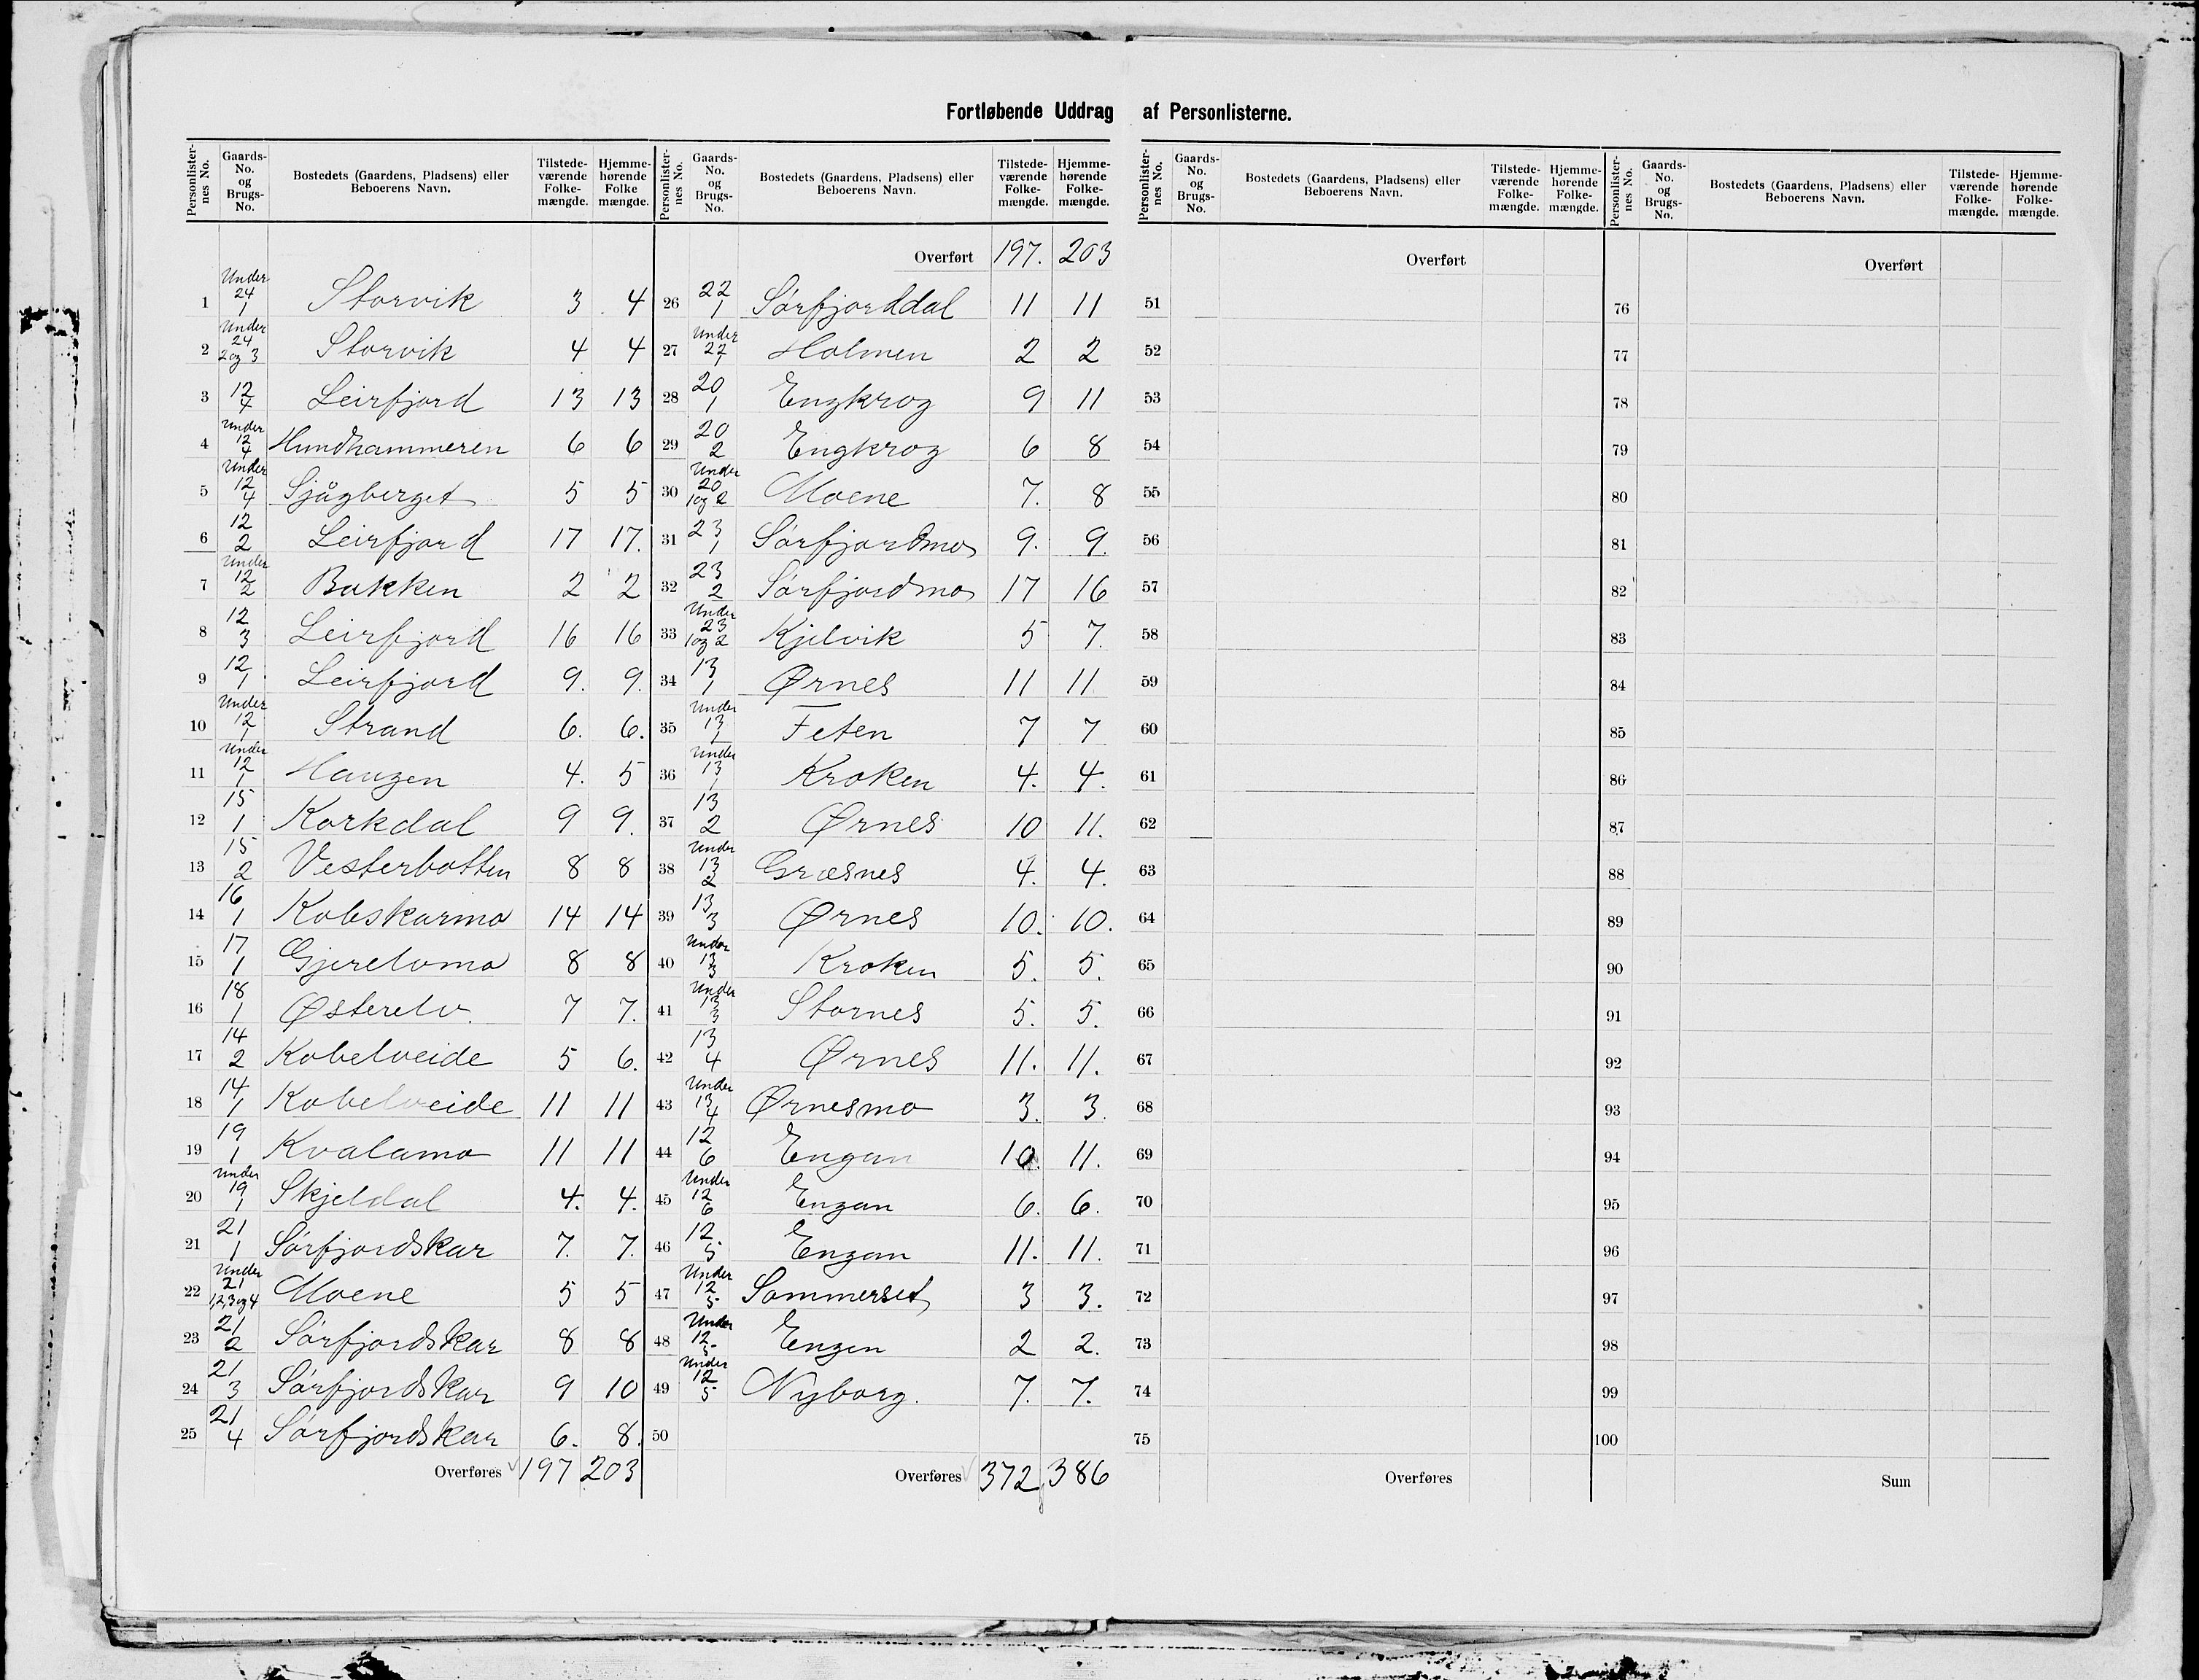 Fortløbende Uddrag af Personlisterne.
Personlisternes No. Gaards-No. og Brugs-No. Bostedets (Gaardens, Pladsens) eller Beboerens Navn. Tilstedeværende Folkemængde. Hjemmehørende Folkemængde.
1 Under 24/1 Storvik 3 4
2 Under 24/2 og 3 Storvik 4 4
3 12/4 Leirfjord 13 13
4 Under 12/4 Hundhammeren 6 6
5 Under 12/4 Sjågberget 5 5
6 12/2 Leirfjord 17 17.
7 Under 12/2 Bakken 2 2
8 12/3 Leirfjord 16 16
9 12/1 Leirfjord 9. 9.
10 Under 12/1 Strand 6. 6.
11 Under 12/1 Haugen 4. 5
12 15/1 Korkdal 9 9.
13 15/2 Vesterbotten 8 8
14 16/1 Kobskarmo 14 14
15 17/1 Gjerelvmo 8 8
16 18/1 Østerelv. 7 7.
17 14/2 Kobelveide 5 6.
18 14/1 Kobelveide 11 11
19 19/1 Kvalamo 11 11
20 Under 19/1 Skjeldal 4. 4.
21 21/1 Sørfjordskar 7. 7.
22 Under 21/1,2,3 og 4 Moene 5 5
23 21/2 Sørfjordskar 8 8
24 21/3 Sørfjordskar 9 10
25 21/4 Sørfjordskar 6. 8.
Overføres 197 203
Personlisternes No. Gaards-No. og Brugs-No. Bostedets (Gaardens, Pladsens) eller Beboerens Navn. Tilstedeværende Folkemængde. Hjemmehørende Folkemængde.
Overført 197. 203
26 22/1 Sørfjorddal 11 11
27 Under 22/1 Holmen 2 2
28 20/1 Engkrog 9 11
29 20/2 Engkrog 6 8
30 Under 20/1 og 2 Moene 7. 8
31 23/1 Sørfjordmo 9. 9.
32 23/2 Sørfjordmo 17 16
33 Under 23/1 og 2 Kjelvik 5 7.
34 13/1 Ørnes 11 11
35 Under 13/1 Feten 7 7
36 Under 13/1 Kroken 4. 4.
37 13/2 Ørnes 10 11.
38 Under 13/2 Græsnes 4. 4.
39 13/3 Ørnes 10. 10.
40 Under 13/3 Kroken 5. 5.
41 Under 13/3 Stornes 5. 5.
42 13/4 Ørnes 11. 11.
43 Under 13/4 Ørnesmo 3. 3.
44 12/6 Engan 10. 11.
45 Under 12/6 Engan 6. 6.
46 12/5 Engan 11. 11.
47 Under 12/5 Sommerset 3 3.
48 Under 12/5 Engen 2 2.
49 Under 12/5 Nyborg. 7. 7.
50
Overføres 372 386
Personlisternes No. Gaards-No. og Brugs-No. Bostedets (Gaardens, Pladsens) eller Beboerens Navn. Tilstedeværende Folkemængde. Hjemmehørende Folkemængde.
Overført
51
52
53
54
55
56
57
58
59
60
61
62
63
64
65
66
67
68
69
70
71
72
73
74
75
Overføres
Personlisternes No. Gaards-No. og Brugs-No. Bostedets (Gaardens, Pladsens) eller Beboerens Navn. Tilstedeværende Folkemængde. Hjemmehørende Folkemængde.
Overført
76
77
78
79
80
81
82
83
84
85
86
87
88
89
90
91
92
93
94
95
96
97
98
99
100
Sum